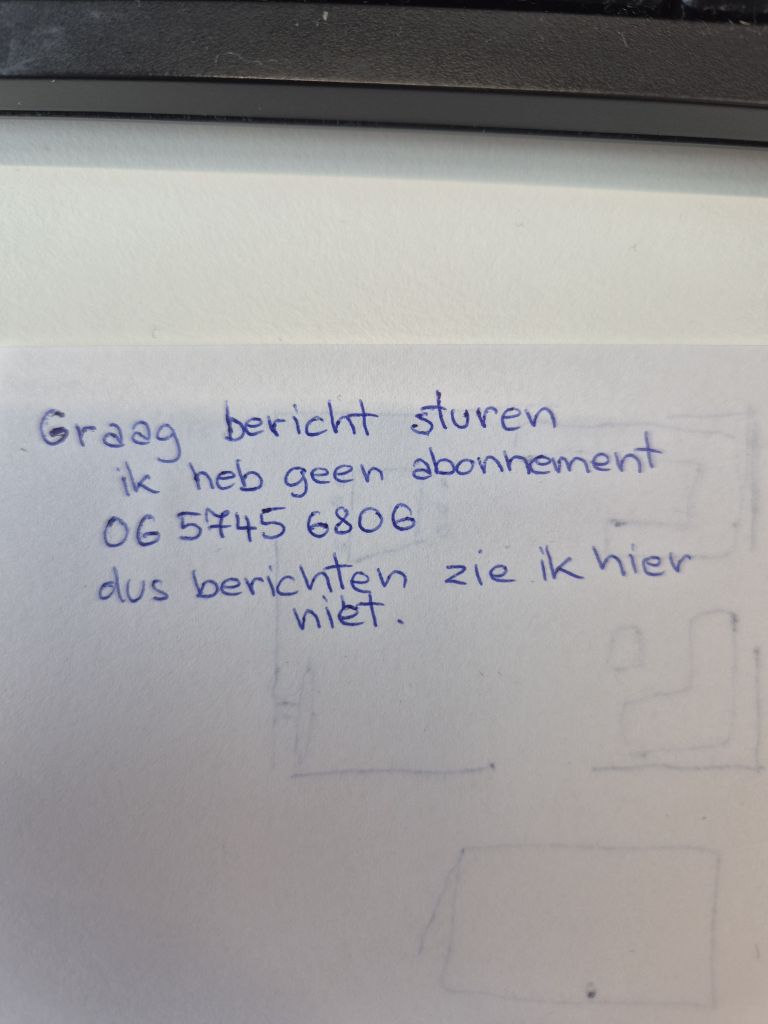 Graag bericht sturen
ik heb geen abonnement
06 5745 6806
dus berichten zie ik hier
niet.